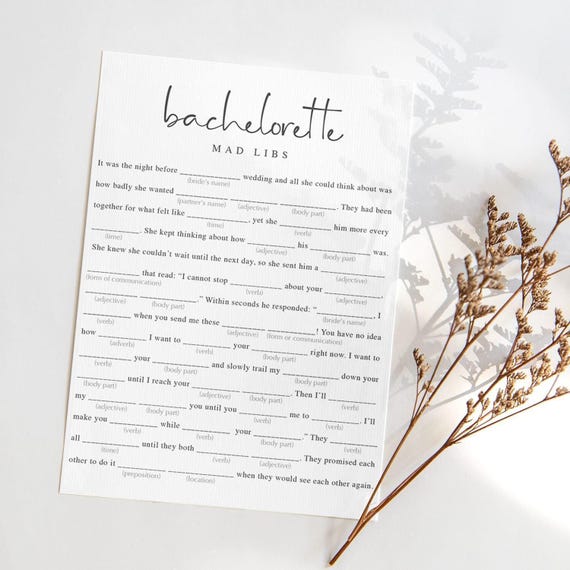 bachelorette
MAD LIBS
It was the night before ____________ wedding and all she could think about was
(bride's name)
how badly she wanted ____________ ____________ ____________. They had been
(partner's name) (adjective) (body part)
together for what felt like ____________, yet she ________ him more every
(time) (verb)
________. She kept thinking about how __________ his __________ was.
(time) (adjective) (body part)
She knew she couldn't wait until the next day, so she sent him a ____________
(adjective)
__________ that read: "I cannot stop __________ about your __________,
(form of communication) (verb) (adjective)
__________ __________." Within seconds he responded: "____________, I
(adjective) (body part) (bride's name)
__________ when you send me these ________ __________! You have no idea
(verb) (adjective) (form or communication)
how ________ I want to __________ your ____________ right now. I want to
(adverb) (verb) (body part)
__________ your __________ and slowly trail my __________ down your
(verb) (body part) (body part)
__________ until I reach your __________ ____________. Then I'll __________
(body part) (adjective) (body part) (verb)
my __________ __________ you until you __________ me to ________. I'll
(adjective) (body part) (verb) (verb)
make you __________ while __________ your __________." They __________
(verb) (verb) (body part) (verb)
all ________ until they both __________ __________. They promised each
(tone) (verb) (adjective)
other to do it __________ ______________ when they would see each other again.
(preposition) (location)